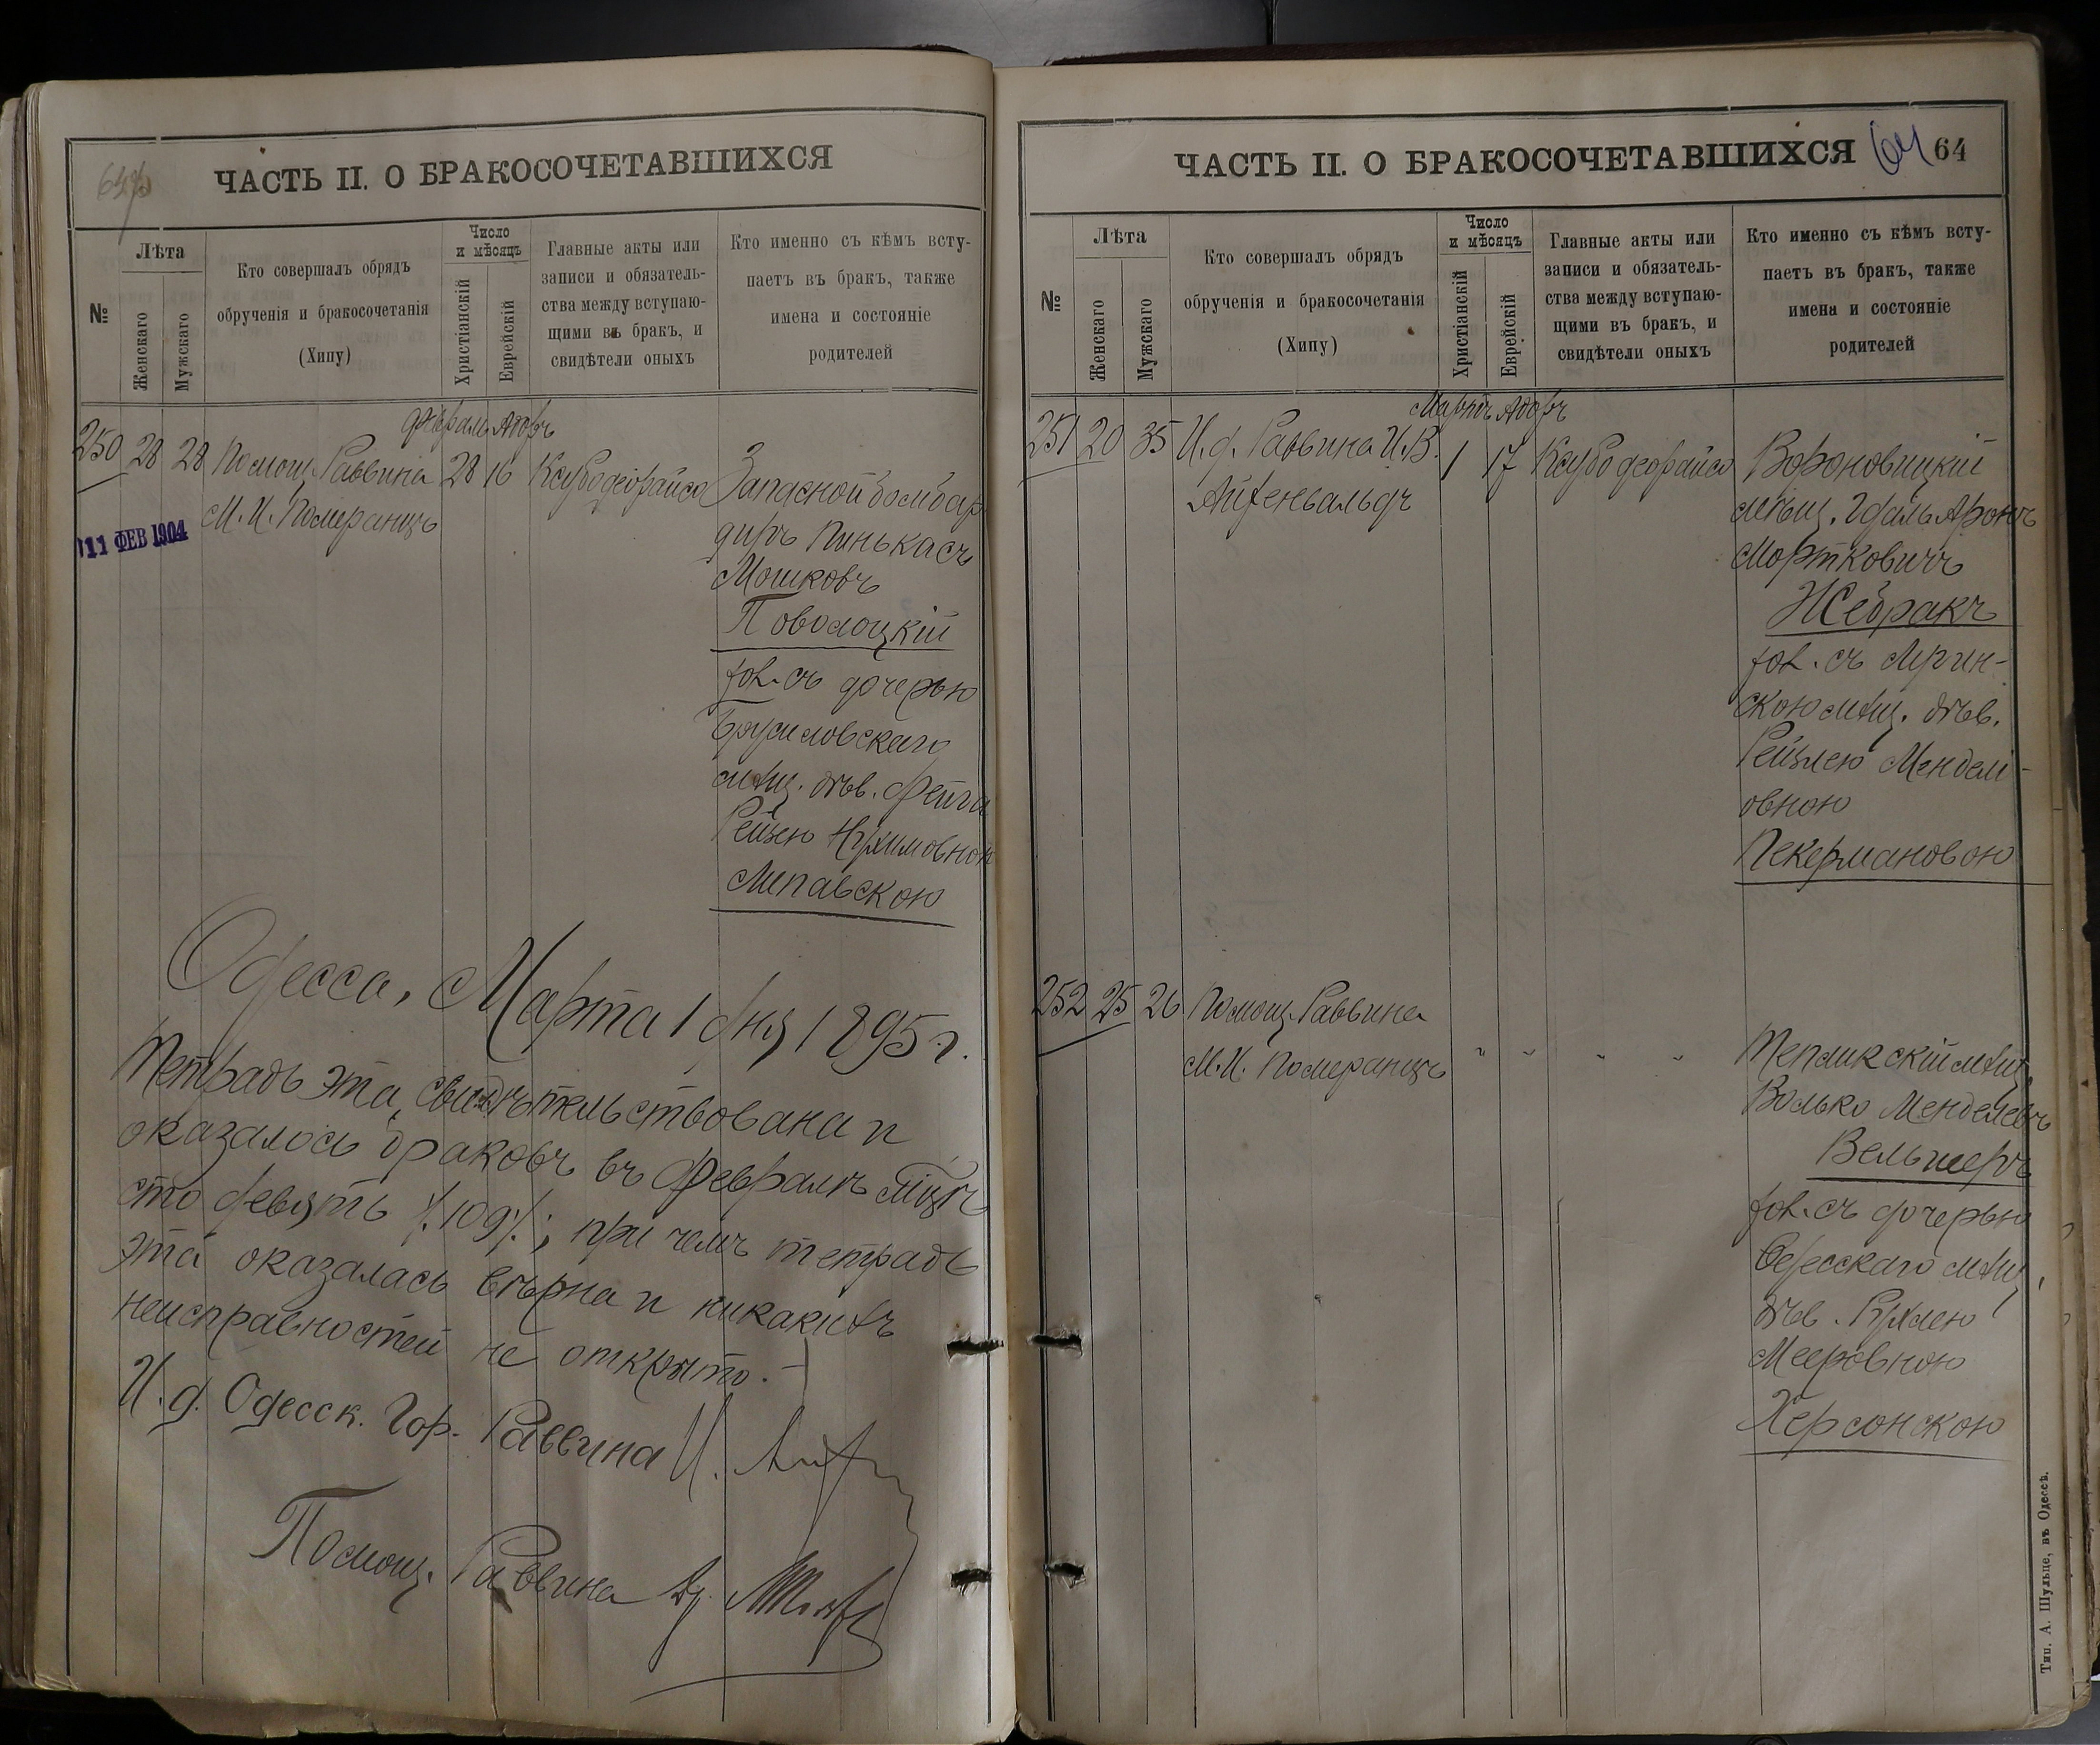 ЧАСТЬ II. О БРАКОСОЧЕТАВШИХСЯ
№
Лѣта
Женскаго
Мужскаго
Кто совершалъ обрядъ
обрученія и бракосочетанія
(Хипу)
Число
и мѣсяцъ
Христіанскій
Еврейскій
Главные акты или
записи и обязатель-
ства между вступаю-
щими въ бракъ, и
свидѣтели оныхъ
Кто именно съ кѣмъ всту-
паетъ въ бракъ, также
имена и состояніе
родителей
Февраль Адоръ
250 28 28 Помощ. Раввина 28 16
М. И. Померанцъ
11 ФЕВ 1904
Запасной бомбар
диръ Пинькасъ
Мошковъ
Поволоцкій
хол. съ дочерью
Брусиловскаго
мѣщ. дѣв. Фейга
Рейзею Нухимовною
Липавскою
Одесса, Марта 1 дня 1895 г.
Тетрадь эта свидѣтельствована и
оказалось браковъ въ Февралѣ мцѣ
сто девять ٪109٪; при чемъ тетрадь
эта оказалась вѣрна и никакихъ
неисправностей не открыто.
И. д. Одесск. Гор. Раввина И.
Помощ. Раввина Др.
ЧАСТЬ II. О БРАКОСОЧЕТАВШИХСЯ 64 64
№
Лѣта
Женскаго
Мужскаго
Кто совершалъ обрядъ
обрученія и бракосочетанія
(Хипу)
Число
и мѣсяцъ
Христіанскій
Еврейскій
Главные акты или
записи и обязатель-
ства между вступаю-
щими въ бракъ, и
свидѣтели оныхъ
Кто именно съ кѣмъ всту-
паетъ въ бракъ, также
имена и состояніе
родителей
Мартъ Адоръ
251 20 35 И. д. Раввина И. В. 1 17
Айхенвальдъ
Вороновицкій
мѣщ. Гдаль Аронъ
Мортковичъ
Жебракъ
хол. съ Лугин-
скою мѣщ. дѣв.
Рейзлею Мендели-
овною
Пекермановою
252 25 26 Помощ. Раввина
М. И. Померанцъ " " " "
Тепликскій мѣщ.
Волько Менделевъ
Вельшеръ
хол. съ дочерью
Одесскаго мѣщ.
дѣв. Рухлею
Мееровною
Херсонскою
Тип. А. Шульце, въ Одессѣ.